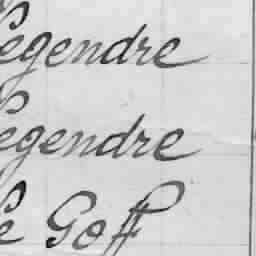 Legendre
Legendre
Le Goff